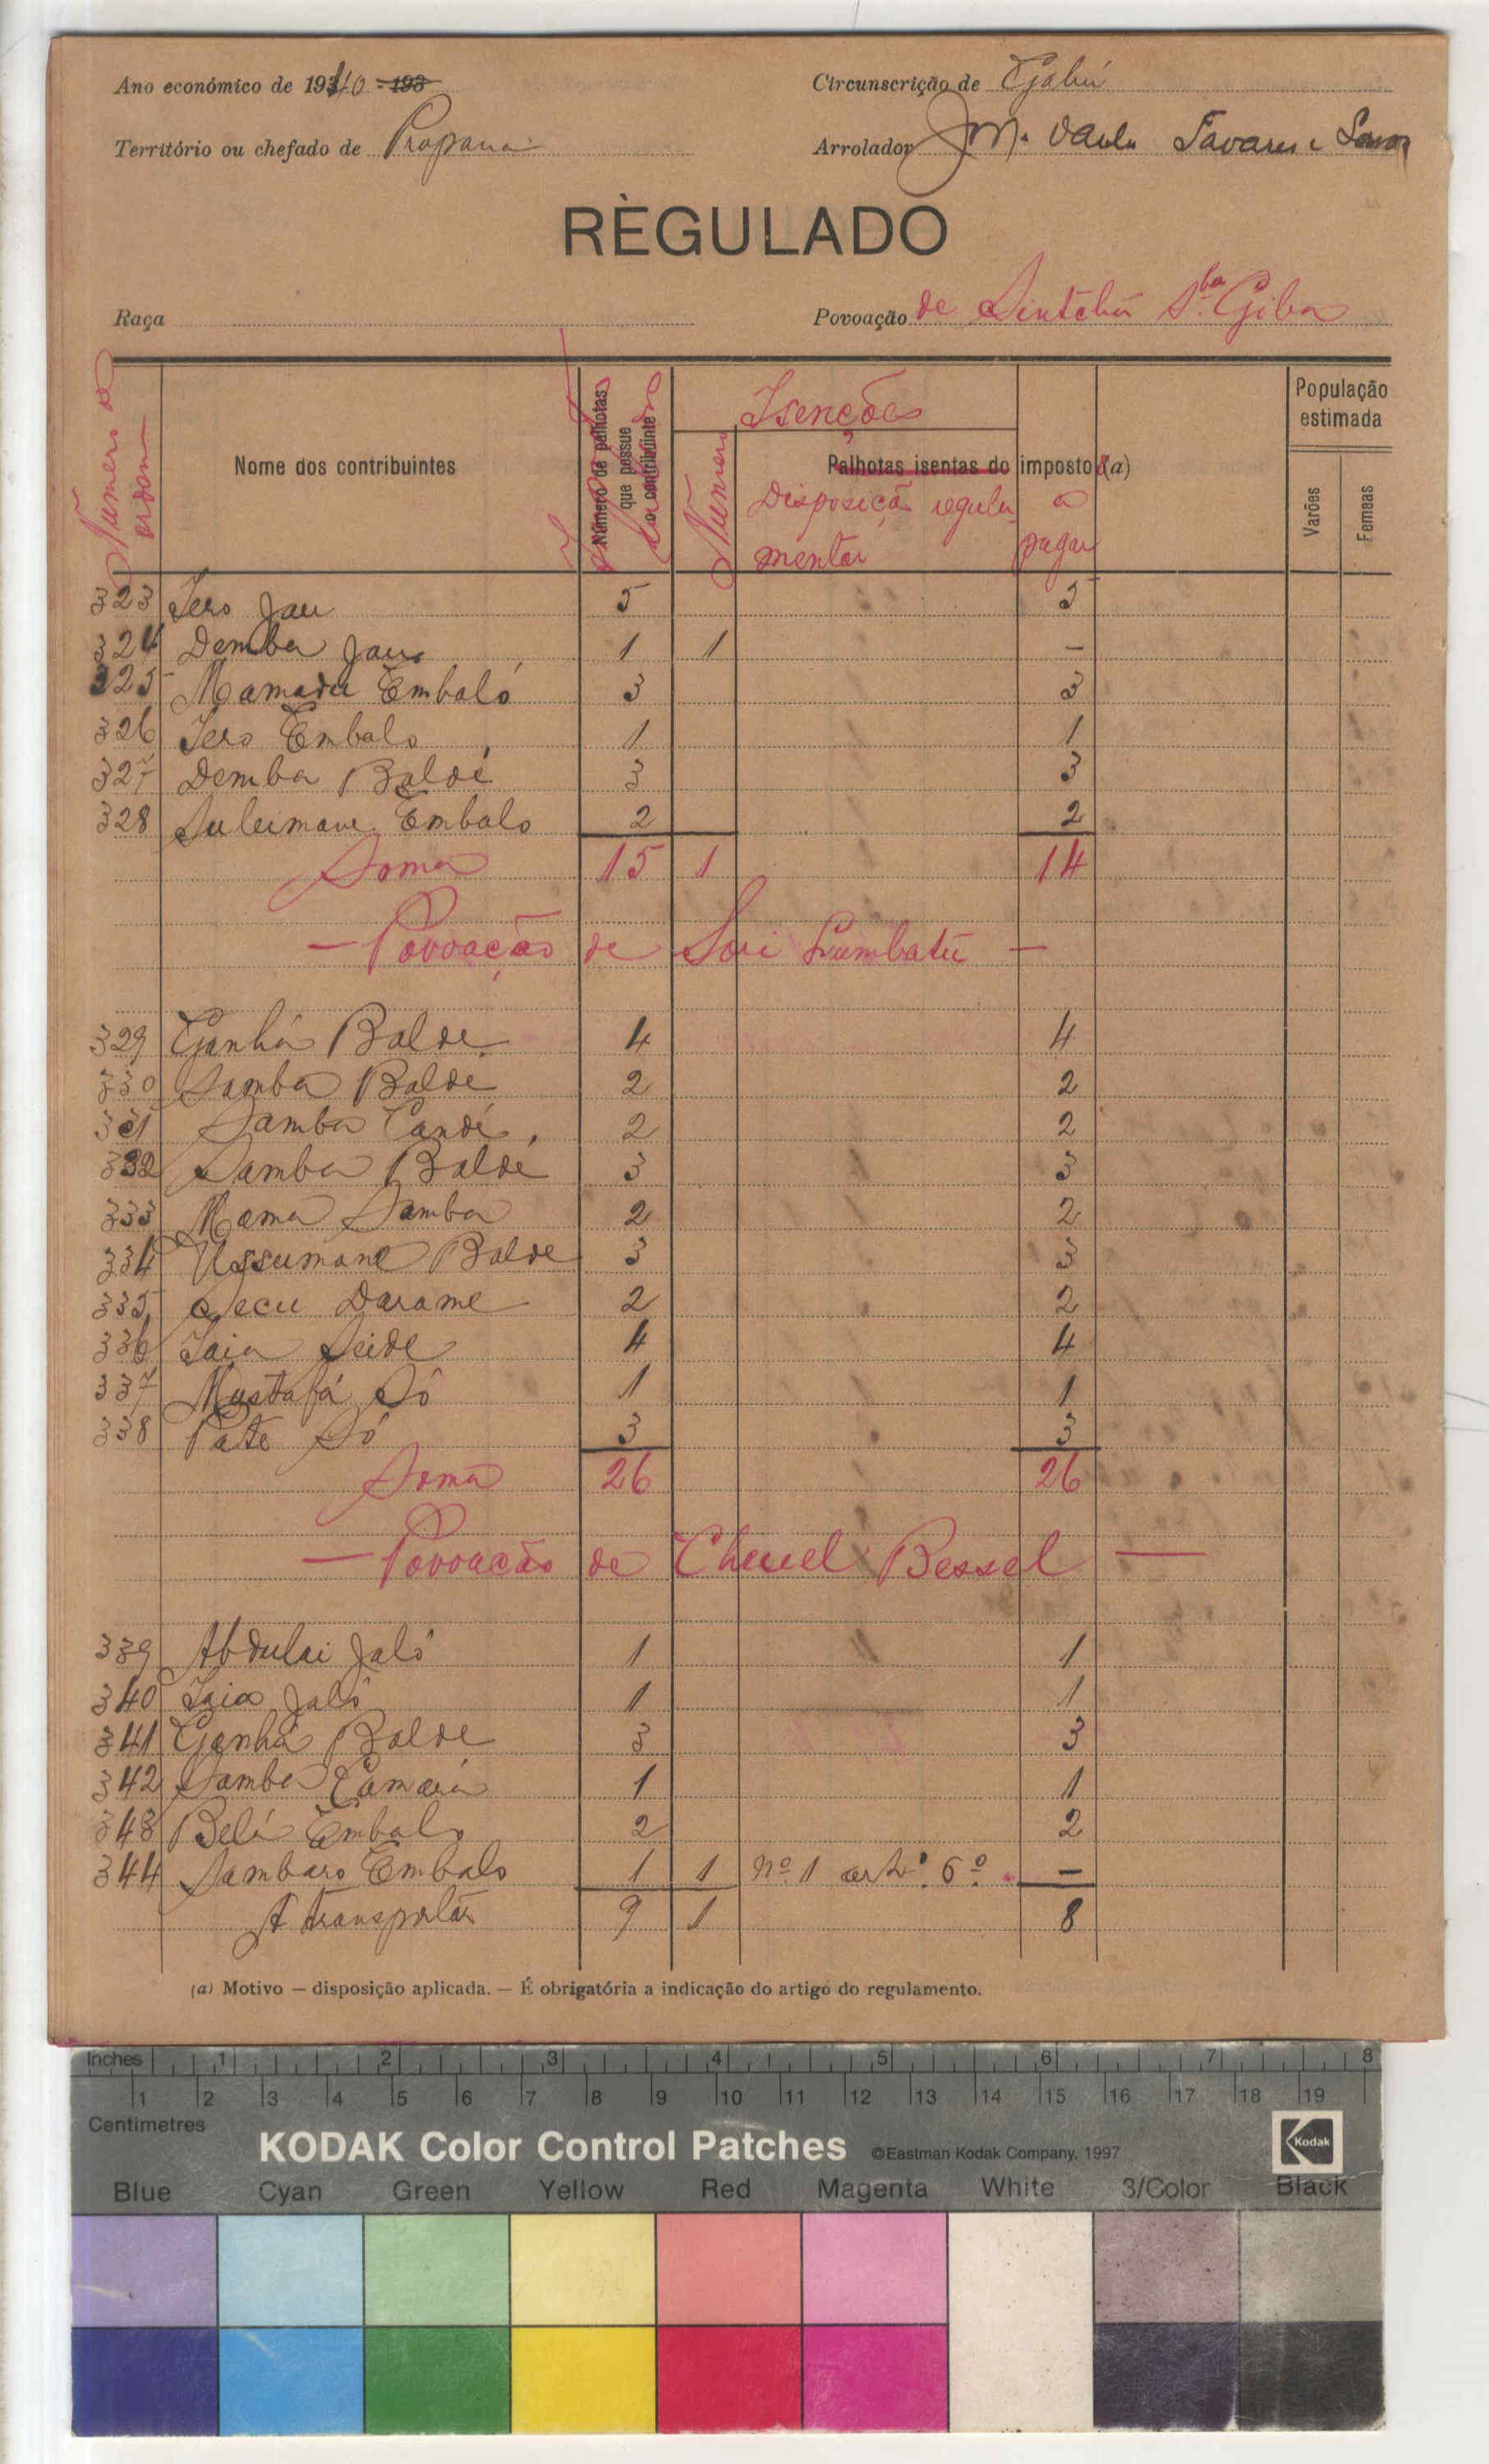 Ano económico de 1940 - 193
Circunscrição de Gabú
Território ou chefado de Propana
Arrolador J M. Tavares e
RÈGULADO
Raça
Povoação de Sintchã S.ba Giba
Numero de ordem
Nome dos contribuintes
Número de palhotas que possue o contribuinte
Isenções
Numero
Palhotas isentas do imposto (a)
Disposição regulamentar
a pagar
População estimada
Varões
Femeas
323 Iero Jau 5 5
324 Demba Jau 1 1 —
325 Mamadu Embaló 3 3
326 Iero Embalo 1 1
327 Demba Baldé 3 3
328 Suleimane Embalo 2 2
Soma 15 1 14
— Povoação de Sori Lumbatú —
329 Ganhá Balde 4 4
330 Samba Balde 2 2
331 Samba Candé 2 2
332 Samba Baldé 3 3
333 Mama Samba 2 2
334 Ussumane Balde 3 3
335 Secu Darame 2 2
336 Iaia Seide 4 4
337 Mustafá Só 1 1
338 Pate Só 3 3
Soma 26 26
— Povoação de Chuel Bessel —
339 Abdulai Jaló 1 1
340 Iaia Jaló 1 1
341 Ganhá Balde 3 3
342 Samba Camará 1 1
343 Belá Embalo 2 2
344 Sambaro Embalo 1 1 nº 1 artº. 6º. —
A transportar 9 1 8
(a) Motivo — disposição aplicada. — É obrigatória a indicação do artigo do regulamento.
Inches 1 2 3 4 5 6 7 8
1 2 3 4 5 6 7 8 9 10 11 12 13 14 15 16 17 18 19
Centimetres
KODAK Color Control Patches ©Eastman Kodak Company, 1997 Kodak
Blue Cyan Green Yellow Red Magenta White 3/Color Black